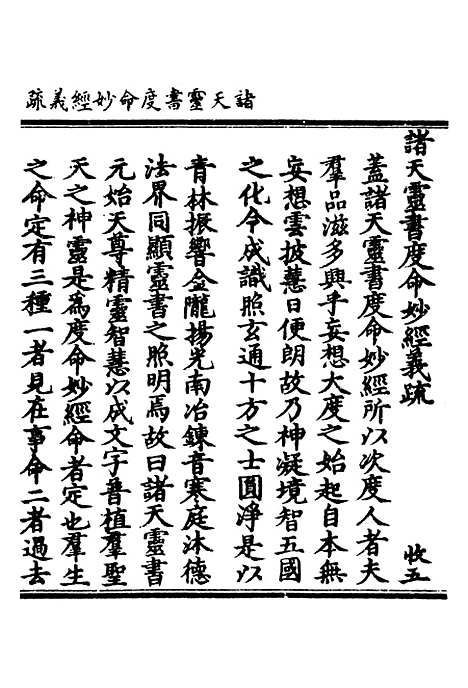 諸天靈書度命妙經義疏
諸天靈書度命妙經義疏 收五
蓋諸天靈書度命妙經所以次度人者夫
羣品滋多興乎妄想大度之始起自本無
妄想雲披慧日便朗故乃神凝境智五國
之化令成識照玄通十方之士圓淨是以
青林振響金隴揚光南冶鍊音寒庭沐德
法界同顯靈書之照明焉故曰諸天靈書
元始天尊精靈智慧以成文字普植羣聖
天之神靈是爲度命妙經命者定也羣生
之命定有三種一者見在事命二者過去